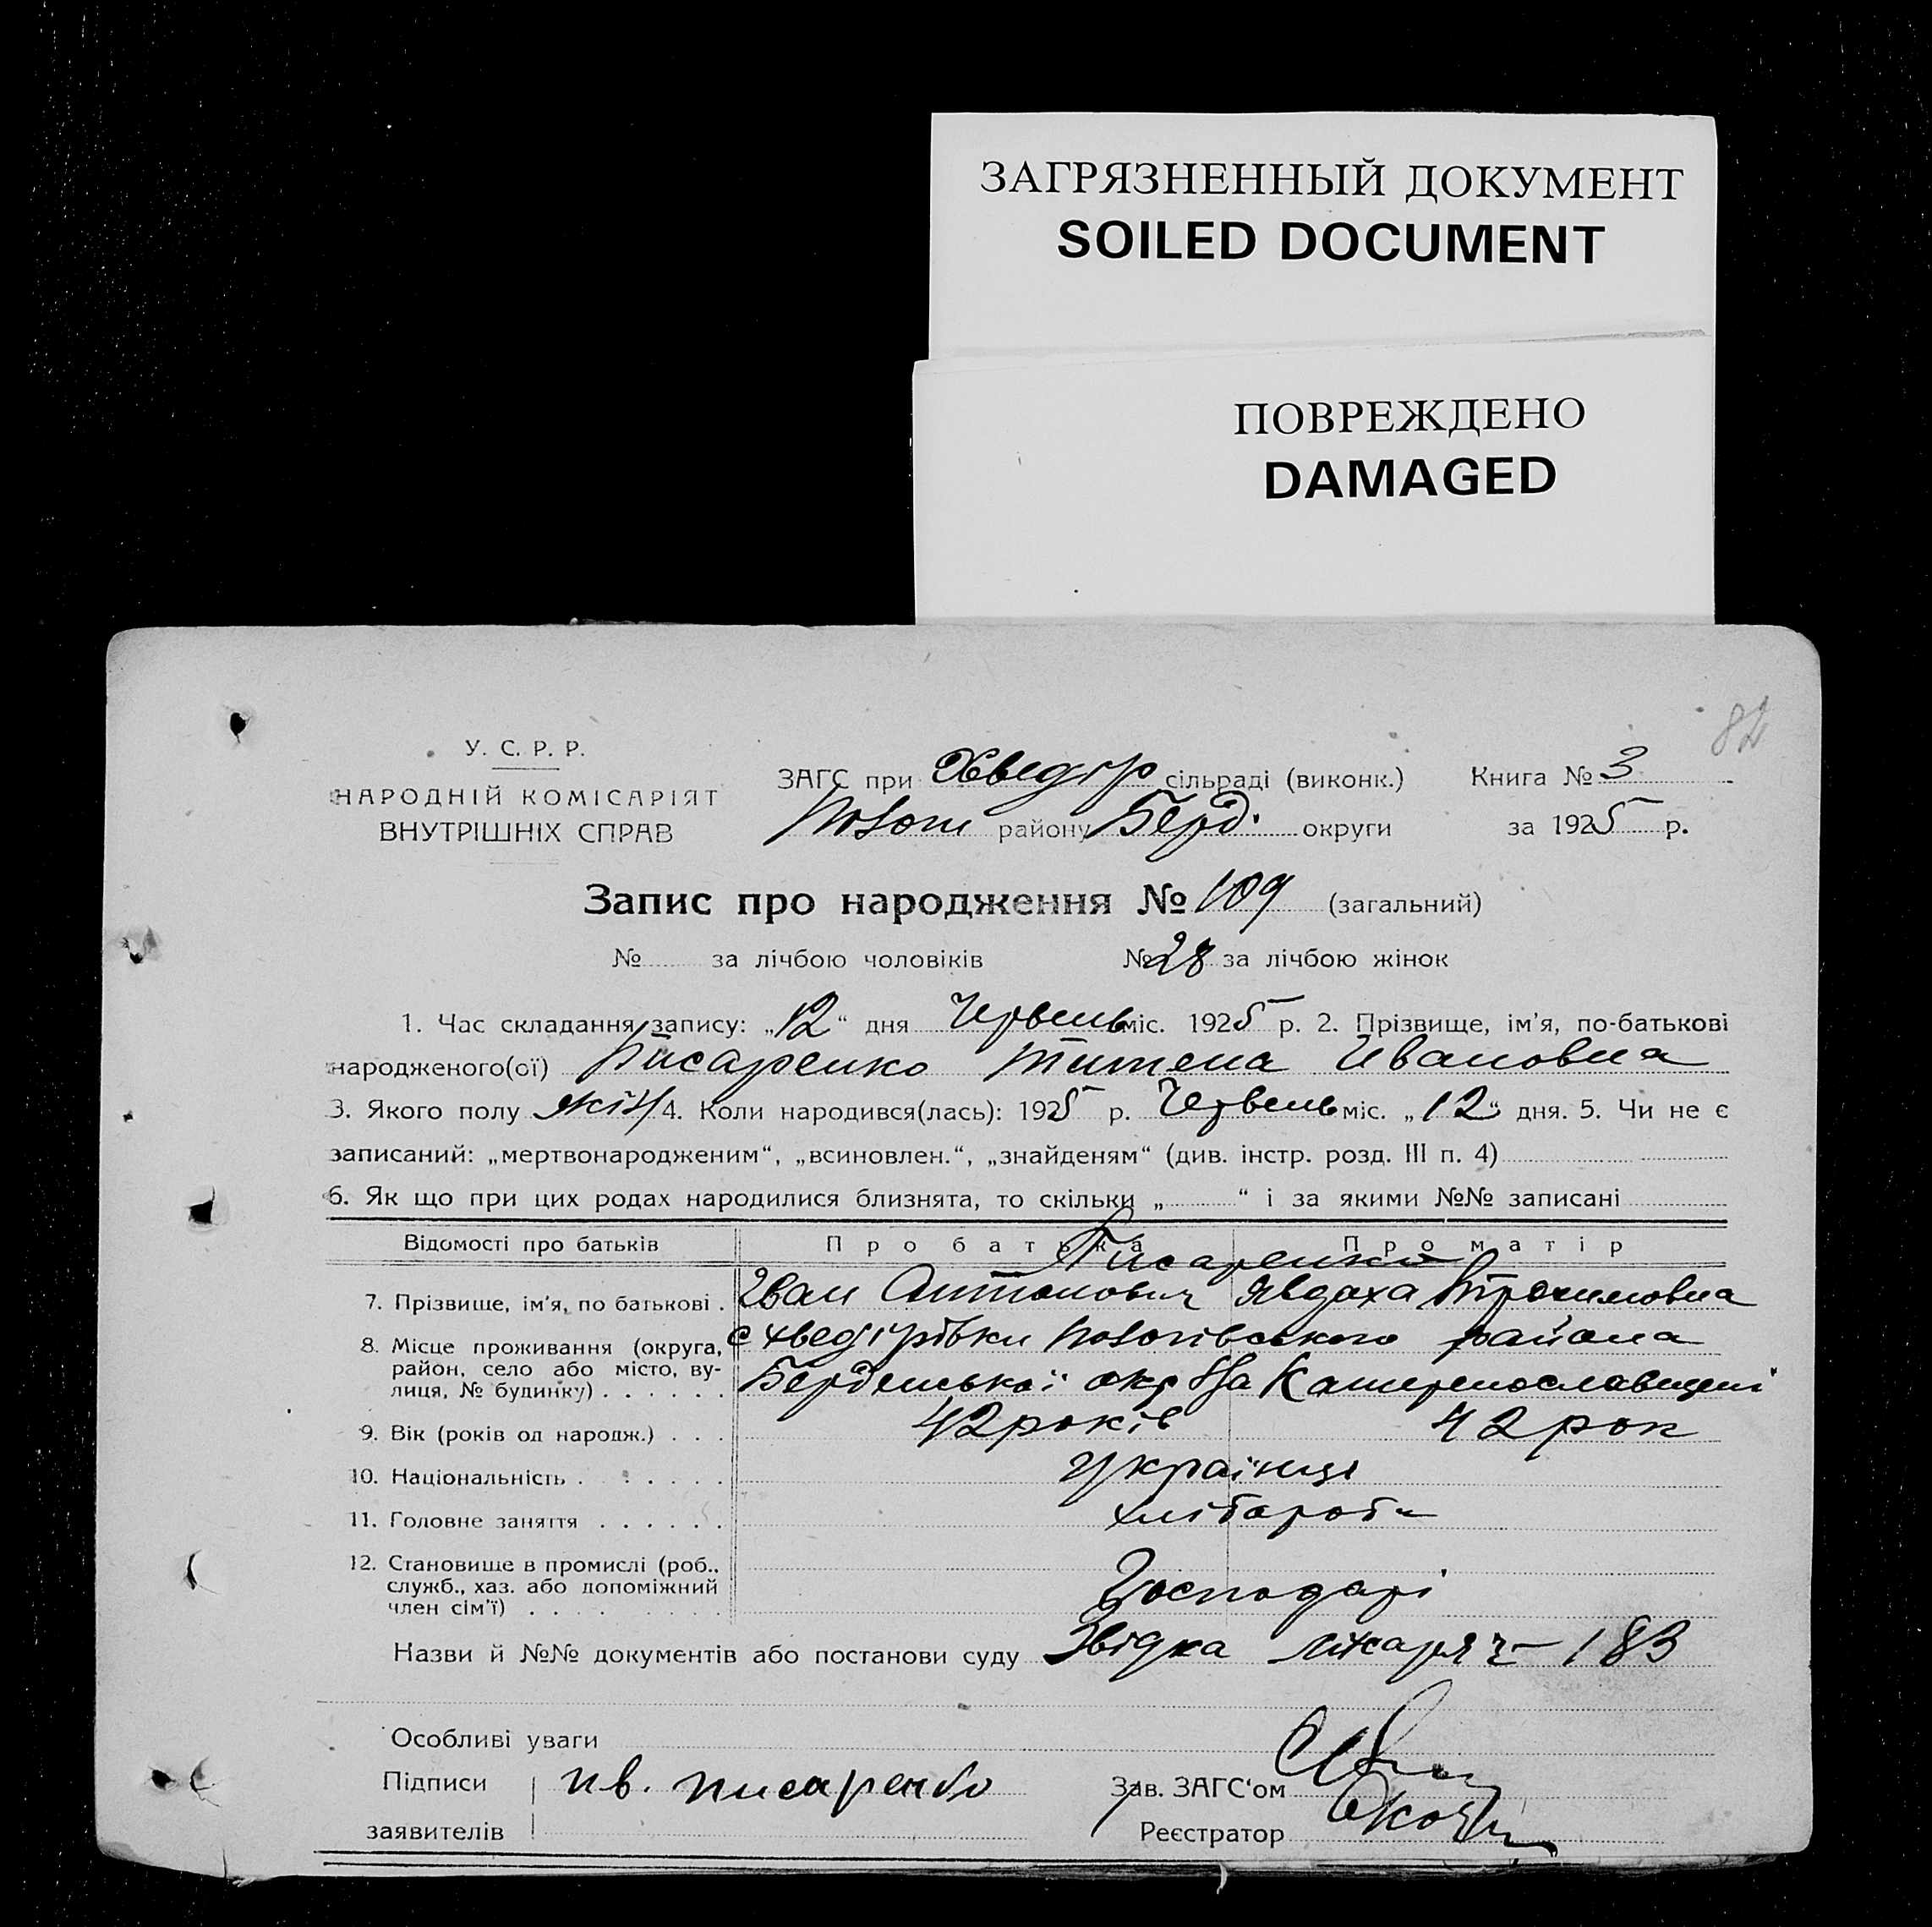 ЗАГРЯЗНЕННЫЙ ДОКУМЕНТ
SOILED DOCUMENT
ПОВРЕЖДЕНО
DAMAGED
82
У. С. Р. Р.
НАРОДНІЙ КОМІСАРІЯТ
ВНУТРІШНІХ СПРАВ
ЗАГС при Хведір сільраді (виконк.) Книга № 3
району Берд. округи за 1925 р.
Запис про народження № 109 (загальний)
№ за лічбою чоловіків № 28 за лічбою жінок
1. Час складання запису: „12“ дня Червень міс. 1925 р. 2. Прізвище, ім'я, по-батькові
народженого(ої) Писаренко Ивановна
3. Якого полу жін 4. Коли народився(лась): 1925 р. Червень міс. „12“ дня. 5. Чи не є
записаний: „мертвонародженим“, „всиновлен.“, „знайденям“ (див. інстр. розд. III п. 4)
6. Як що при цих родах народилися близнята, то скільки „ “ і за якими №№ записані
Відомості про батьків Про батька Про матір
Писаренки
7. Прізвище, ім'я, по батькові . Іван Антонович Явдоха Трохимовна
8. Місце проживання (округа, район, село або місто, вулиця, № будинку) . . . . . . с Хведірівки района
Берденської окр на Катеренославщені
9. Вік (років од народж.) . . . 42 років 42 рок
10. Національність . . . . . . Українці
11. Головне заняття . . . . . . хлібароби
12. Становище в промислі (роб., служб., хаз. або допоміжний член сім'ї) . . . . Господарі
Назви й №№ документів або постанови суду Звідка лікаря ч – 183
Особливі уваги
Підписи ив. писаренко Зав. ЗАГС'ом
заявителів Реєстратор